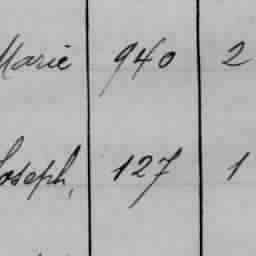 Marie 940 2
Joseph, 127 1